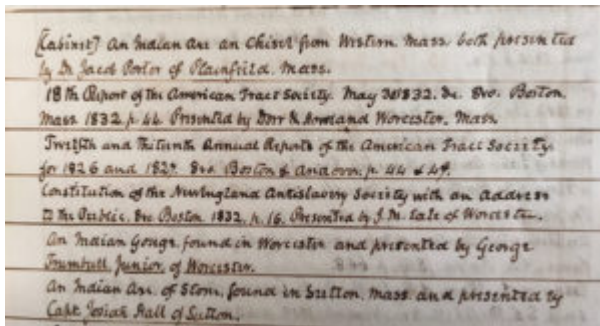 [Cabinet] An Indian Axe an Chisel from Western Mass. both presented
by Dr Jacob Porter of Plainfield, Mass.
18th Report of the American Tract Society. May 30 1832. &c. 8vo. Boston.
Mass 1832. p. 44. Presented by Dorr & Howland Worcester, Mass
Twelfth and thirteenth Annual Reports of the American Tract Society
for 1826 and 1827. 8vo. Boston & Andover. p. 44 & 49.
Constitution of the New England Antislavery Society with an Address
to the Public. 8vo Boston 1832. p. 16. Presented by J. M. Earle of Worcester.
An Indian Gouge found in Worcester and presented by George
Trumbull, Junior, of Worcester.
An Indian Axe, of Stone, found in Sutton, Mass. and presented by
Capt. Josiah Hall of Sutton.